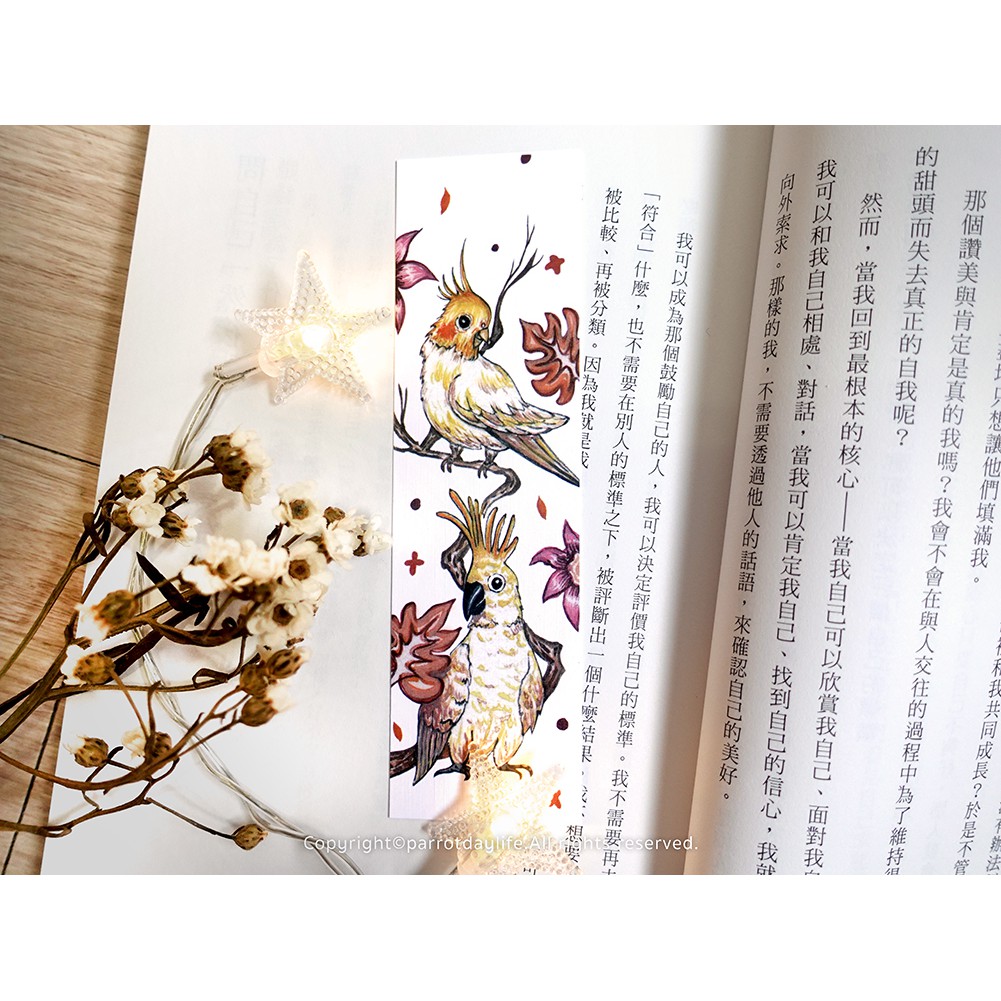 那個讚美與肯定是真的我嗎？我會不會在與人交往的過程中為了維持
的甜頭而失去真正的自我呢？
然而，當我回到最根本的核心——當我自己可以欣賞我自己、面對我
我可以和我自己相處、對話，當我可以肯定我自己、找到自己的信心，我就
向外索求。那樣的我，不需要透過他人的話語，來確認自己的美好。
我可以成為那個鼓勵自己的人，我可以決定評價我自己的標準。我不需要再
「符合」什麼，也不需要在別人的標準之下，被評斷出一個什麼結果，
被比較、再被分類。因為我就是我
想要
Copyright©parrotdaylife.All rights reserved.